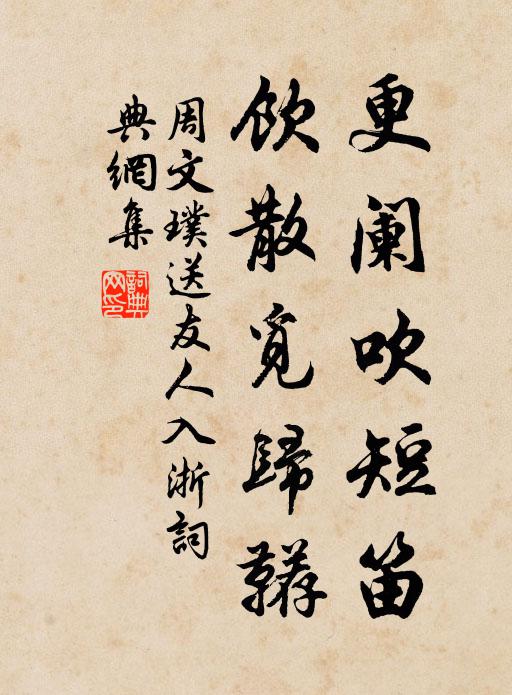 更阑吹短笛
飲散覓歸
周文璞送友人入浙詞
典網集
詞典
网印